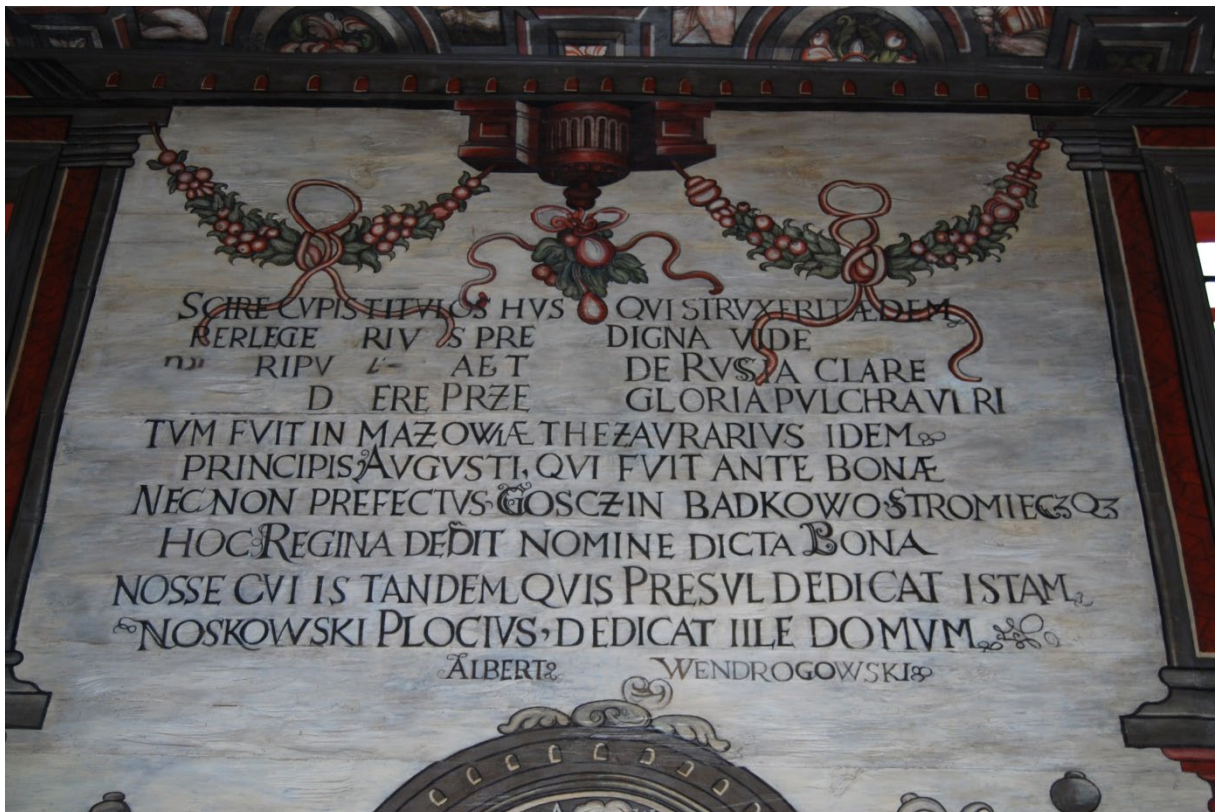 SCIRE CVPIS TITVLOS HVS QVI STRVXERIT ÆDEM
PERLEGE RIV S PRE DIGNA VIDE
RIPV AE T DE RVSSIA CLARE
D ERE PRZE GLORIA PVLCHRA VI RI
TVM FVIT IN MAZOWIÆ THEZAVRARIVS IDEM
PRINCIPIS AVGVSTI, QVI FVIT ANTE BONÆ
NEC NON PREFECTVS GOSCZIN BADKOWO STROMIECZQZ
HOC REGINA DEDIT NOMINE DICTA BONA
NOSSE CVI IS TANDEM QVIS PRESVL DEDICAT ISTAM
NOSKOWSKI PLOCIVS, DEDICAT IILE DOMVM
ALBERT WENDROGOWSKI